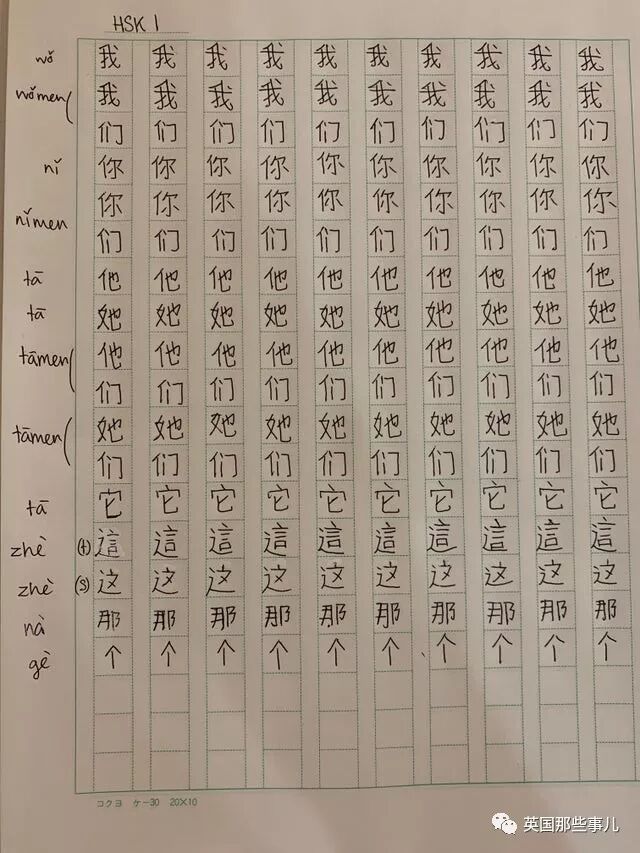 HSK 1
wǒ 我 我 我 我 我 我 我 我 我 我
wǒmen( 我 我 我 我 我 我 我 我 我 我
们 们 们 们 们 们 们 们 们 们
nǐ 你 你 你 你 你 你 你 你 你 你
nǐmen 你 你 你 你 你 你 你 你 你 你
们 们 们 们 们 们 们 们 们 们
tā 他 他 他 他 他 他 他 他 他 他
tā 她 她 她 她 她 她 她 她 她 她
tāmen( 他 他 他 他 他 他 他 他 他 他
们 们 们 们 们 们 们 们 们 们
tāmen( 她 她 她 她 她 她 她 她 她 她
们 们 们 们 们 们 们 们 们 们
tā 它 它 它 它 它 它 它 它 它 它
zhè (t) 這 這 這 這 這 這 這 這 這 這
zhè (s) 这 这 这 这 这 这 这 这 这 这
nà 那 那 那 那 那 那 那 那 那 那
gè 个 个 个 个 个 个 个 个 个 个
コクヨ ケー30 20×10
英国那些事儿